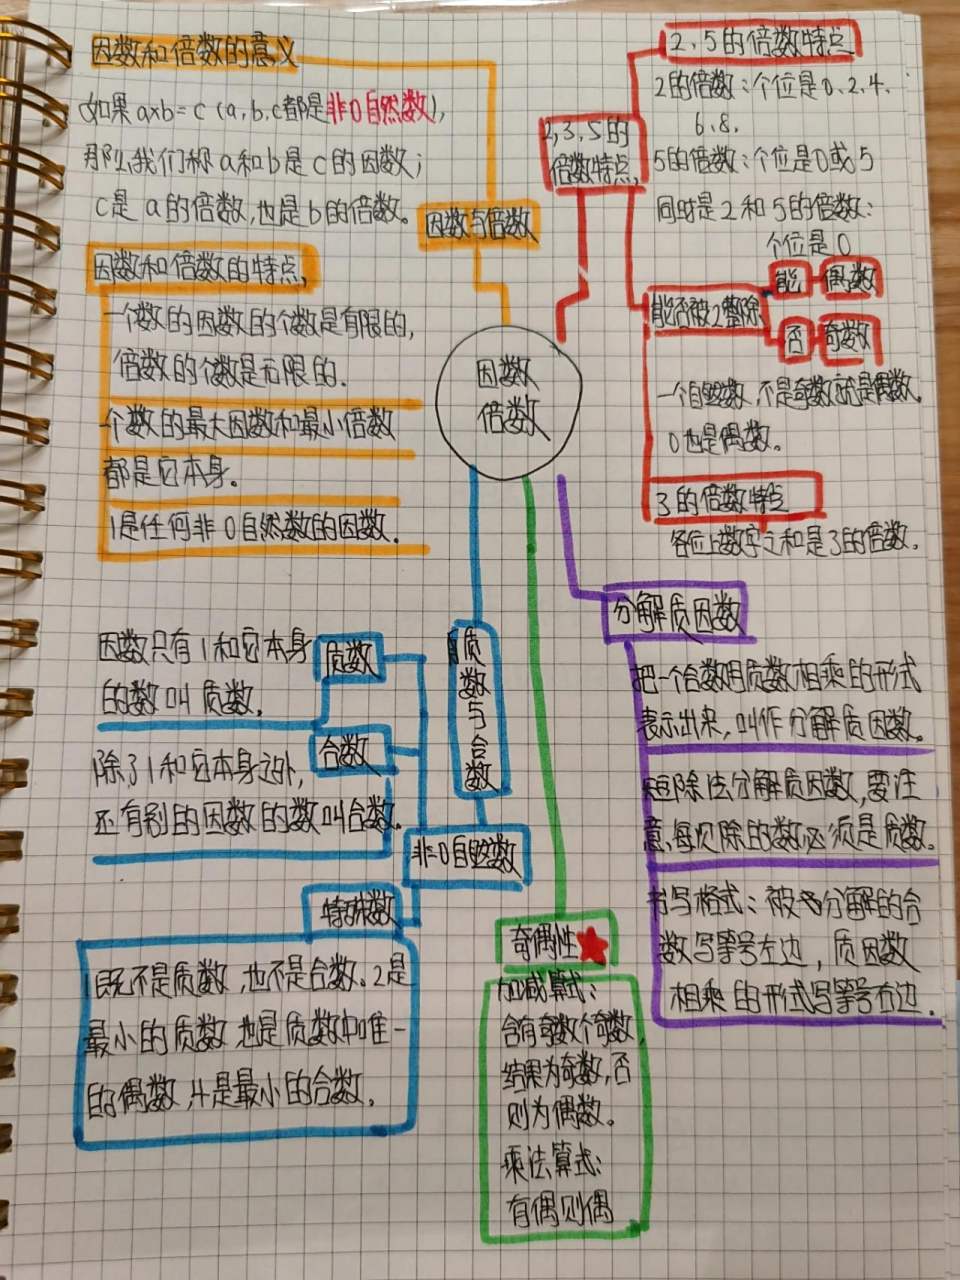 因数和倍数的意义
如果a×b=c(a,b,c都是非0自然数),
那么我们称a和b是c的因数;
c是a的倍数,也是b的倍数。
因数与倍数
因数和倍数的特点,
一个数的因数的个数是有限的,
倍数的个数是无限的.
个数的最大因数和最小倍数
都是它本身。
1是任何非0自然数的因数.
2,3,5的
倍数特点,
2、5的倍数特点
2的倍数:个位是0、2、4、
6、8.
5的倍数:个位是0或5
同时是2和5的倍数:
个位是0
能否被2整除
能
偶数
否
奇数
一个自然数,不是奇数就是偶数。
0也是偶数。
3的倍数特点
各位上数字之和是3的倍数。
因数
倍数
质数与合数
质数
因数只有1和它本身
的数叫质数,
合数
除了1和它本身之外,
还有别的因数的数叫合数.
非0自然数
特殊数
1既不是质数,也不是合数。2是
最小的质数,也是质数中唯一
的偶数,4是最小的合数,
奇偶性
加减算式:
含有奇数个奇数,
结果为奇数,否
则为偶数。
乘法算式:
有偶则偶
分解质因数
把一个合数用质数相乘的形式
表示出来,叫作分解质因数。
短除法分解质因数,要注
意,每次除的数必须是质数。
书写格式:被分解的合
数写等号左边,质因数
相乘的形式写等号右边.